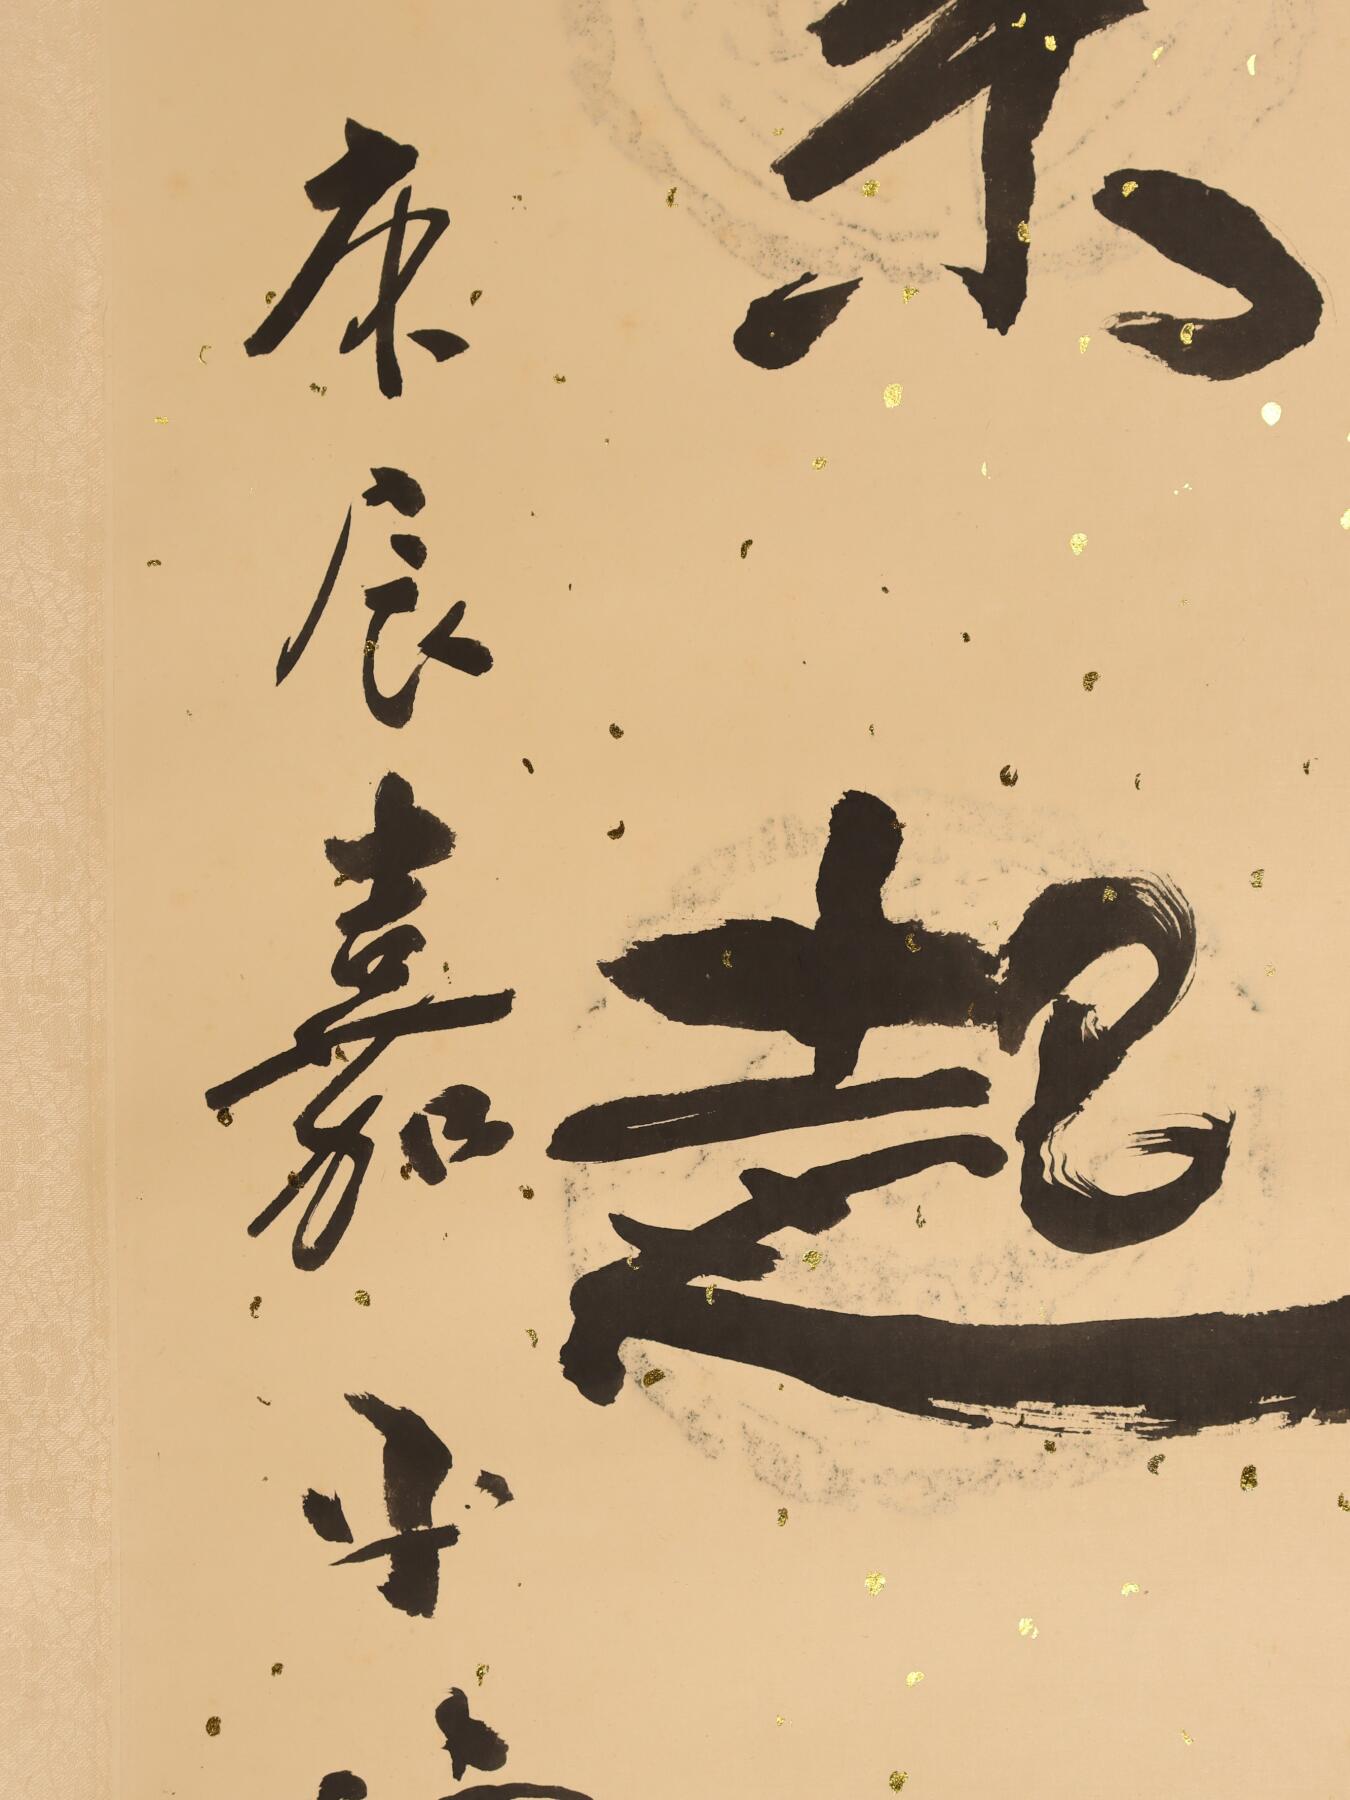 起
庚辰嘉平